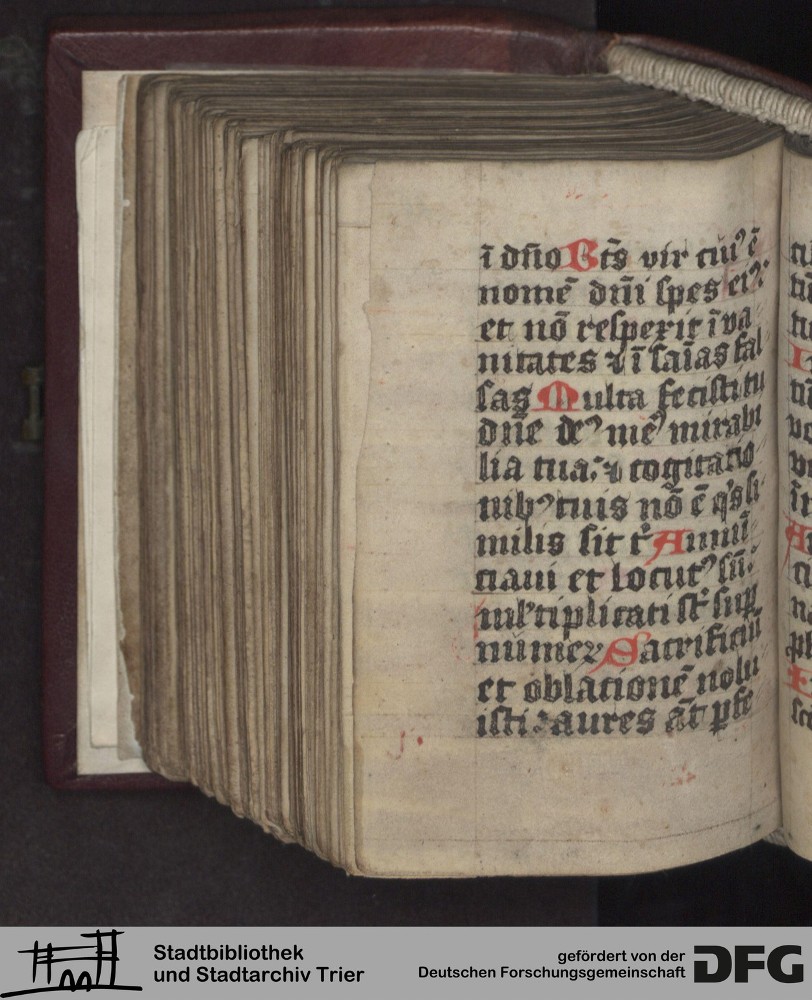 ī dn̄o Bt̄s vir cui᷒ ē
nomē dn̄i spes ei᷒:
et nō respexit ī va
nitates ⁊ ī sāīas fal
sas Multa fecisti tu
dn̄e de᷒ me᷒ mirabi
lia tua: ⁊ cogitatio
nib᷒ tuis nō ē q's si
milis sit t' Annū
ciaui et locut᷒ sū:
ml'tiplicati st' sup
numeꝝ Sacrificiū
et oblationē nolu
isti: aures āt ꝑfe
Stadtbibliothek
und Stadtarchiv Trier
gefördert von der
Deutschen Forschungsgemeinschaft
DFG